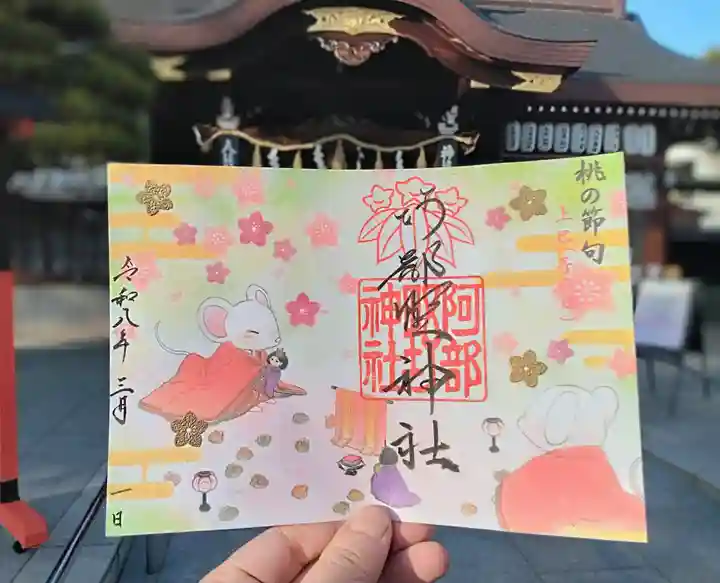 桃の節句
上巳
阿部野神社
阿部
野
神社
令和八年 三月 一日